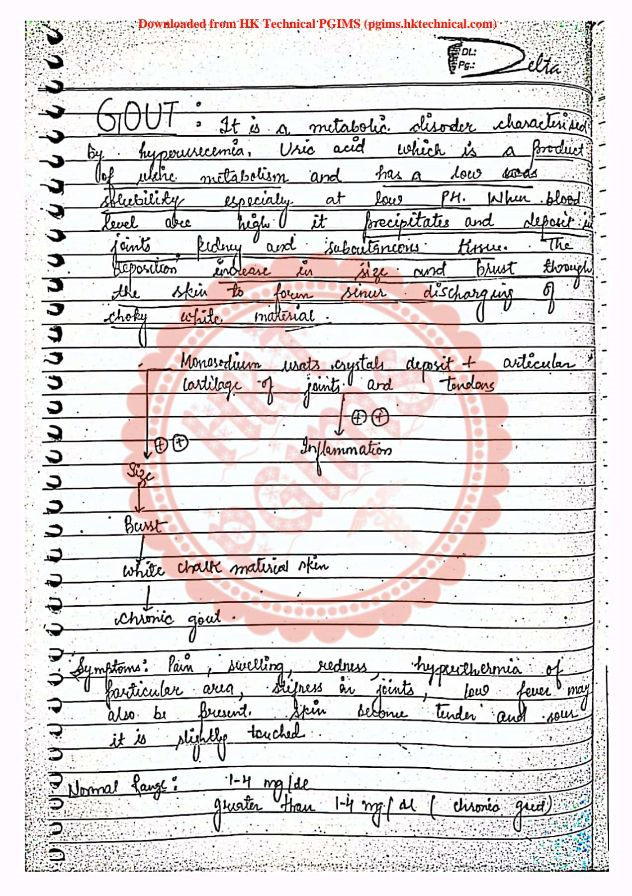 Downloaded from HK Technical PGIMS (pgims.hktechnical.com)
DL:
Pg.:
Delta
GOUT : It is a metabolic disoder characterised
by hyperurecemia, Uric acid which is a product
of urine metabolism and has a low
solubility especialy at low PH. When blood
level are high it precipitates and deposit in
joints kidney and subcutaneous tissue. The
deposition increase in size and brust through
the skin to form sinus discharging of
choky white material.
Monosodium urats crystals deposit + articular
cartilage of joints and tendons
+ +
+ +
Inflammation
Size
Burst
white chalk material skin
chronic gout.
Symptoms: Pain, swelling, redness, hyperthermia of
particular area, stifness in joints, low fever may
also be present. Skin become tender and sour
it is slightly touched
Normal Range: 1-4 mg/dl
greater than 1-4 mg/dl ( chronic
HKT
PGIMS